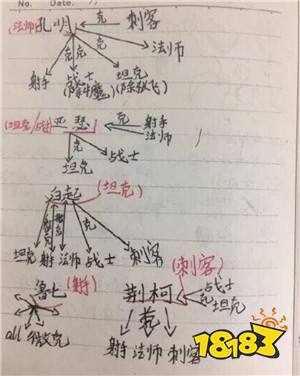 No. Date.
(法师) 孔明 克 刺客
克 克 克 法师
射手 战士 坦克
(除狂飞)
(坦克/ 亚瑟 射手
克 法师
坦克 战士
白起 (坦克)
克
坦克 射 法师 战士 刺客
鲁七 (射) (刺客)
荆柯 战士
克 坦克
all
射手 法师 刺客
18183